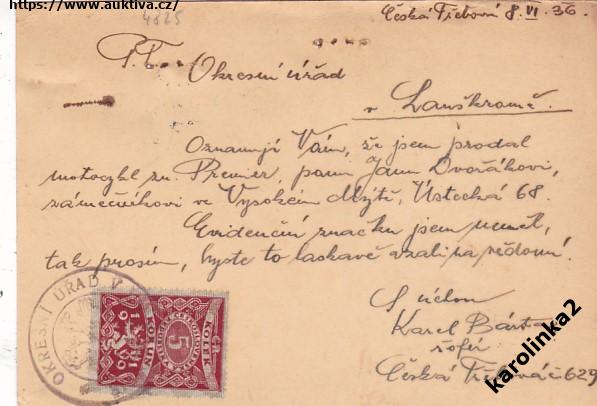 https://www.auktiva.cz/
4825
Česká Třebová 8. VI. 36.
P.T.
Okresní úřad
v Lanškrouně.
Oznamuji Vám, že jsem prodal
motocykl zn. Premier, panu Janu Dvořákovi,
zámečníkovi ve Vysokém Mýtě, Ústecká 68.
Evidenční značku jsem neměl,
tak prosím, byste to laskavě vzali na vědomí.
S úctou
Karel Bárta
šofér
Česká Třebová č 629
OKRESNÍ ÚŘAD V
KOLEK
5
KOLKU
1919
karolinka2